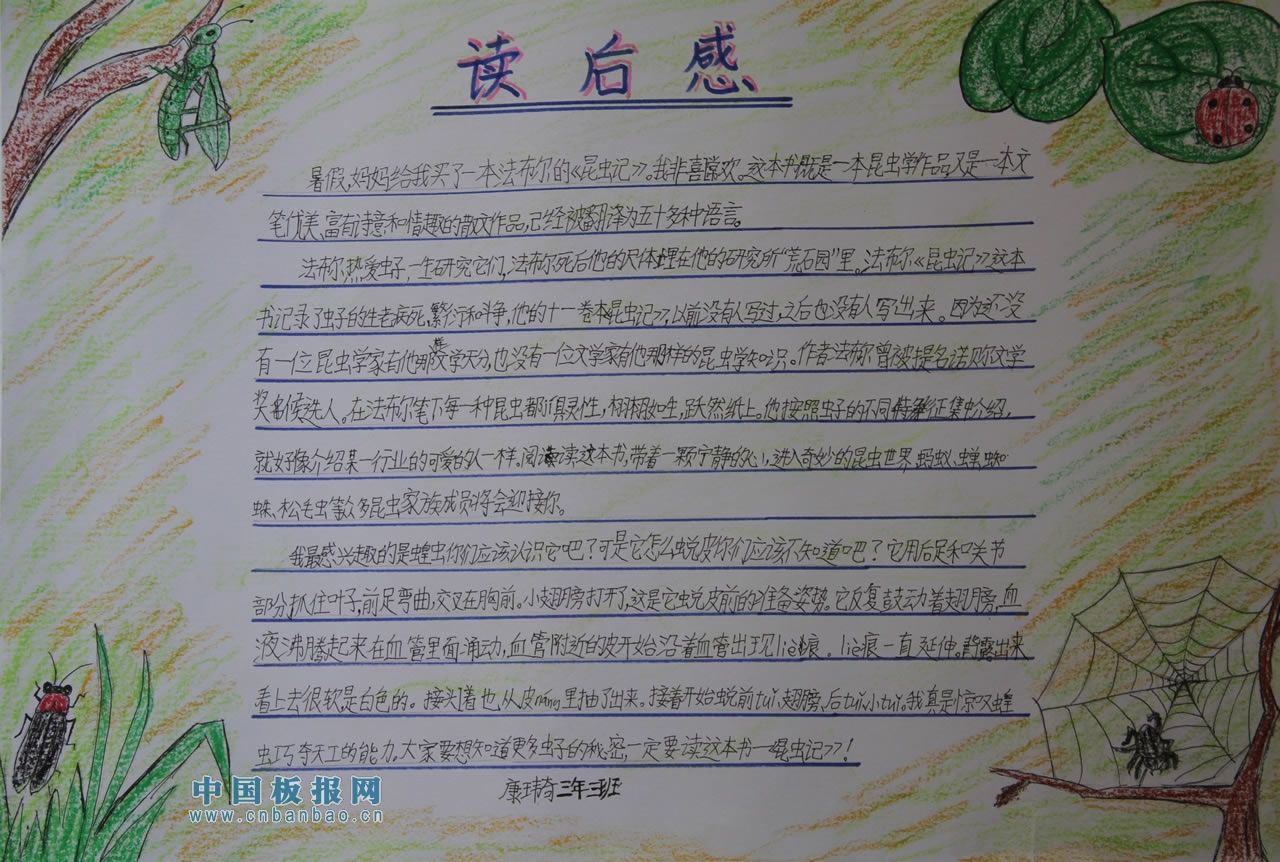 读后感
暑假,妈妈给我买了一本法布尔的《昆虫记》。我非喜常欢。这本书既是一本昆虫学作品,又是一本文
笔优美、富有诗意和情趣的散文作品,已经被翻译为五十多种语言。
法布尔热爱虫子,一生研究它们,法布尔死后他的尸体埋在他的研究所“荒石园”里。法布尔《昆虫记》这本
书记录了虫子的生老病死、繁衍和斗争,他的十一卷本昆虫记》,以前没有人写过,之后也没有人写出来。因为还没
有一位昆虫学家有他那样文学天分,也没有一位文学家有他那样的昆虫学知识。作者法布尔曾被提名诺贝尔文学
奖候选人。在法布尔笔下每一种昆虫都有灵性,栩栩如生,跃然纸上。他按照虫子的不同特征集中介绍,
就好像介绍某一行业的可爱的人一样。阅读这本书,带着一颗宁静的心,进入奇妙的昆虫世界,蚂蚁、蝉、蜘
蛛、松毛虫等众多昆虫家族成员将会迎接你。
我最感兴趣的是蝗虫你们应该认识它吧?可是它怎么蜕皮你们应该不知道吧?它用后足和关节
部分抓住叶子,前足弯曲,交叉在胸前。小翅膀打开了,这是它蜕皮前的准备姿势。它反复鼓动着翅膀,血
液沸腾起来在血管里面涌动,血管附近的皮开始沿着血管出现liè痕。liè痕一直延伸。背露出来
看上去很软是白色的。接头着也从皮náng里抽了出来。接着开始蜕前tuǐ、翅膀、后tuǐ、小tuǐ。我真是惊叹蝗
虫巧夺天工的能力,大家要想知道更多虫子的秘密一定要读这本书—昆虫记》!
康玮奇三年三班
中国板报网
www.cnbanbao.cn